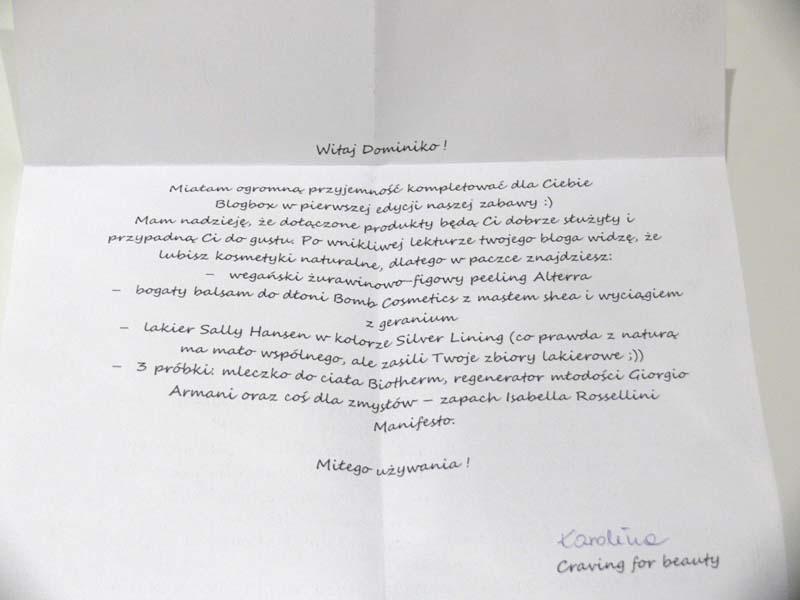 Witaj Dominiko !
Miałam ogromną przyjemność kompletować dla Ciebie
Blogbox w pierwszej edycji naszej zabawy :)
Mam nadzieję, że dołączone produkty będą Ci dobrze służyły i
przypadną Ci do gustu. Po wnikliwej lekturze twojego bloga widzę, że
lubisz kosmetyki naturalne, dlatego w paczce znajdziesz:
– wegański żurawinowo-figowy peeling Alterra
– bogaty balsam do dłoni Bomb Cosmetics z masłem shea i wyciągiem
z geranium
– lakier Sally Hansen w kolorze Silver Lining (co prawda z naturą
ma mało wspólnego, ale zasili Twoje zbiory lakierowe ;))
– 3 próbki: mleczko do ciała Biotherm, regenerator młodości Giorgio
Armani oraz coś dla zmysłów – zapach Isabella Rossellini
Manifesto.
Miłego używania !
Karolina
Craving for beauty